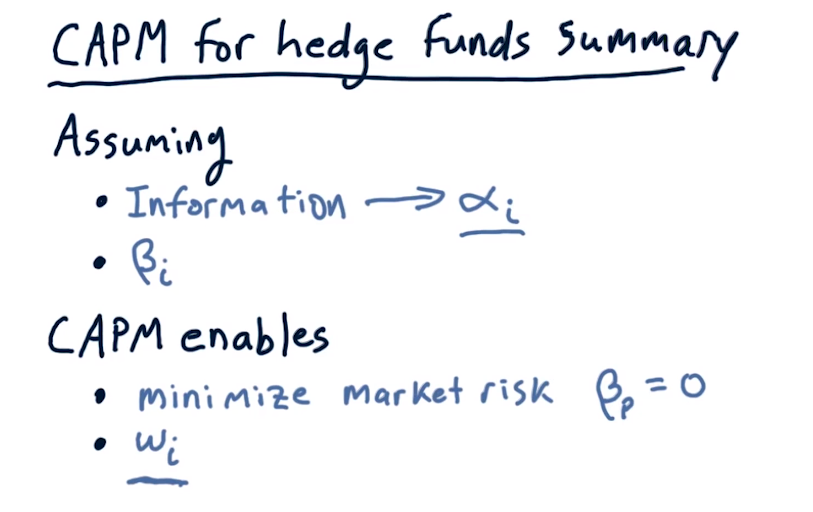 CAPM for hedge funds summary
Assuming
• Information → αi
• βi
CAPM enables
• minimize market risk βp = 0
• wi